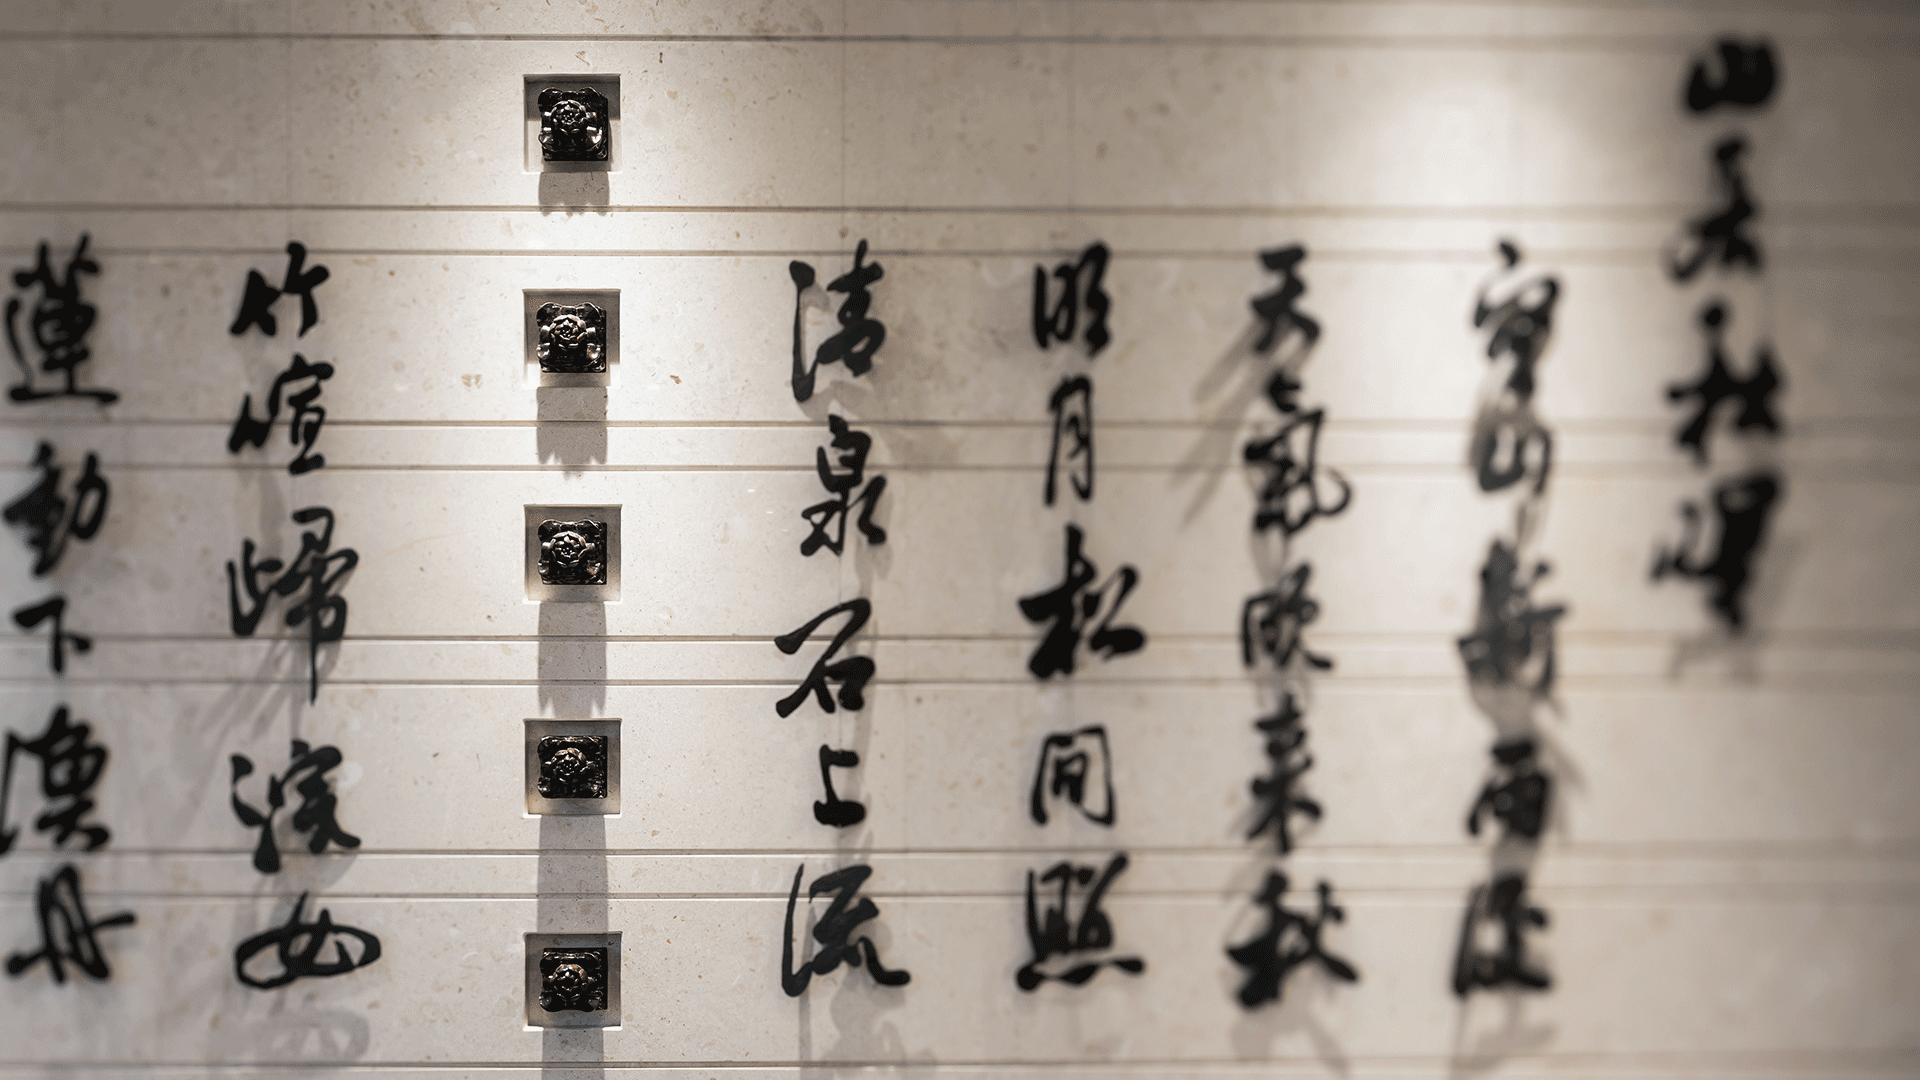 山居秋暝
空山新雨後
天氣晚來秋
明月松間照
清泉石上流
竹喧歸浣女
蓮動下漁舟